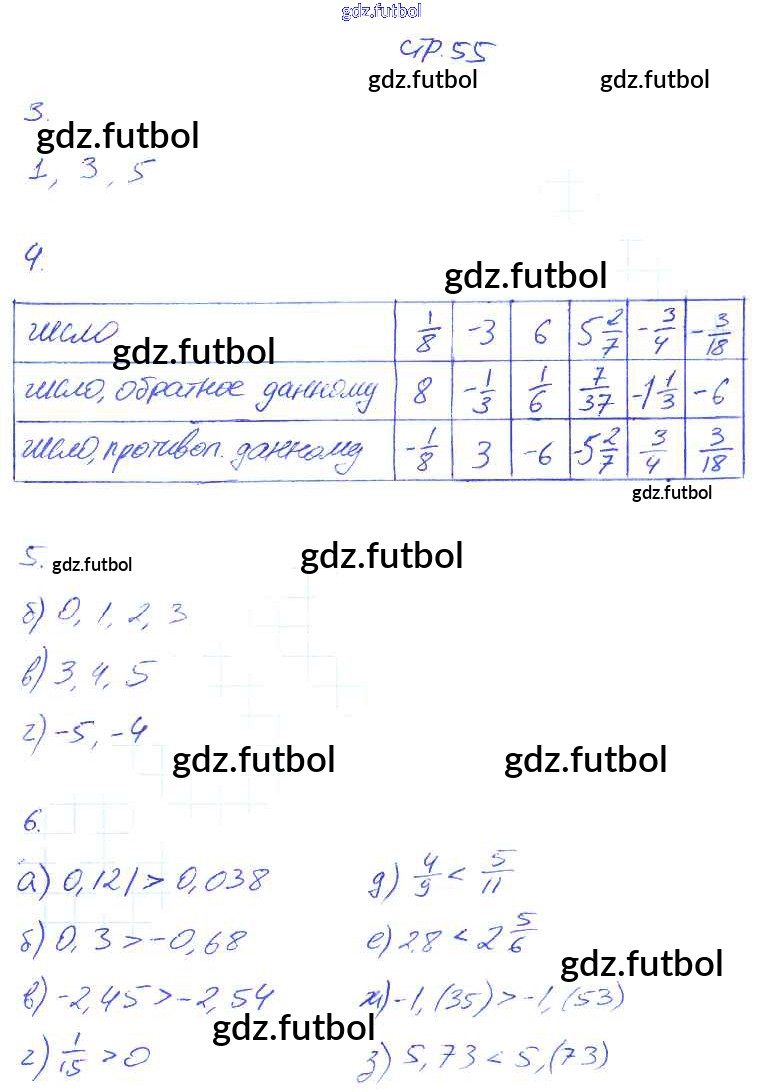 gdz.futbol
стр.55
gdz.futbol gdz.futbol
3.
gdz.futbol
1, 3, 5
4.
gdz.futbol
число 1/8 -3 6 5 2/7 -3/4 -3/18
gdz.futbol
число, обратное данному 8 -1/3 1/6 7/37 -1 1/3 -6
число, противоп. данному -1/8 3 -6 -5 2/7 3/4 3/18
gdz.futbol
5. gdz.futbol gdz.futbol
б) 0, 1, 2, 3
в) 3, 4, 5
г) -5, -4
gdz.futbol gdz.futbol
6.
а) 0,121 > 0,038 д) 4/9 < 5/11
б) 0,3 > -0,68 е) 2.8 < 2 5/6
gdz.futbol
в) -2,45 > -2,54 ж) -1,(35) > -1,(53)
gdz.futbol
г) 1/15 > 0 з) 5,73 < 5,(73)